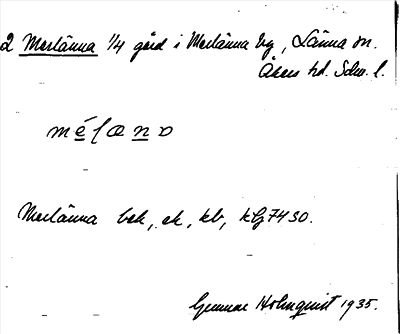 2 Merlänna 1/4 gård i Merlänna by, Länna sn.
Åkers hd. Södm. l.
Merlänna bek, ek, kb, klg 7430.
Gunnar Holmquist 1935.